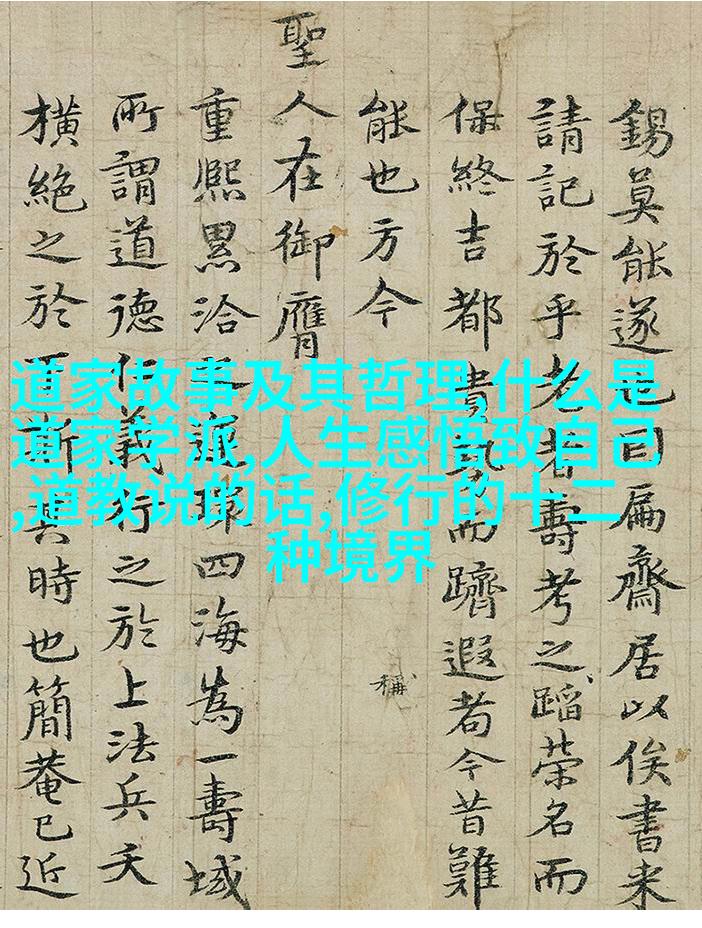 道家故事及其哲理,什么是
道家学派,人生感悟致自己
,道教说的话,修行的十二
种境界
錫莫能遂也曰扁齋居以俟書来
請記於乎老者壽考之蹈榮名而
保終吉都貴勢而躋遐者今昔難
能也方今
稱
聖人在御膺
重熙累洽球四海為一壽域
所謂道德仁義行之於上法兵夭
橫絕之於下斯其時也簡菴已近